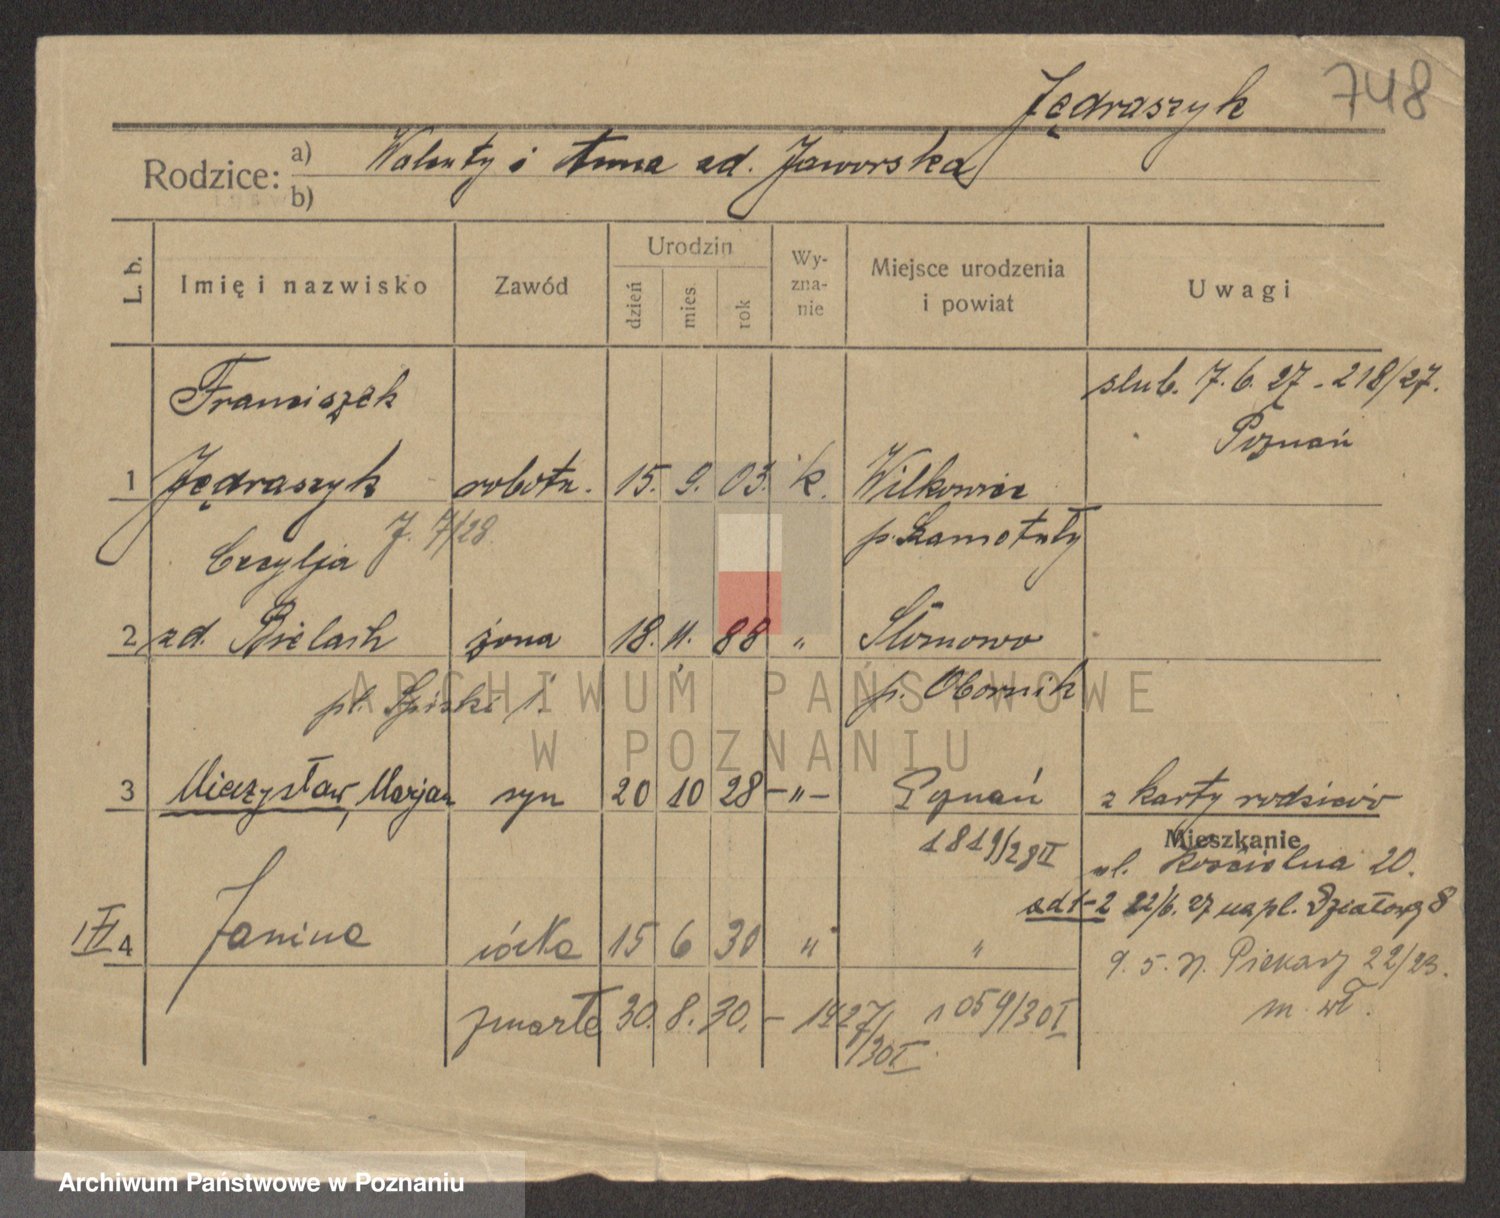 Jędraszyk 748
Rodzice: a) Walenty i Anna zd. Jaworska
b)
L. b. Imię i nazwisko Zawód Urodzin dzień mies. rok Wyznanie Miejsce urodzenia i powiat Uwagi
Franciszek ślub. 7.6.27 - 218/27.
Poznań
1 Jędraszyk robotn. 15. 9. 03. k. Wilkowice
Cecylja J. 7/28 p. Szamotuły
2 zd. Bielach żona 18. 11. 88 „ Słomowo
p. Obornik
3 Mieczysław, Marjan syn 20 10 28 - „ - Poznań z karty rodziców
1819/28 II Mieszkanie
ul. Kościelna 20.
odt-2 22/6. 27 na pl. Działowy 8
I VI 4 Janina córka 15 6 30 „ „
9. 5. Piekary 22/23.
zmarła 30. 8. 30. - 1927/30 I 1059/30 I m. wł.
ARCHIWUM PAŃSTWOWE
W POZNANIU
Archiwum Państwowe w Poznaniu